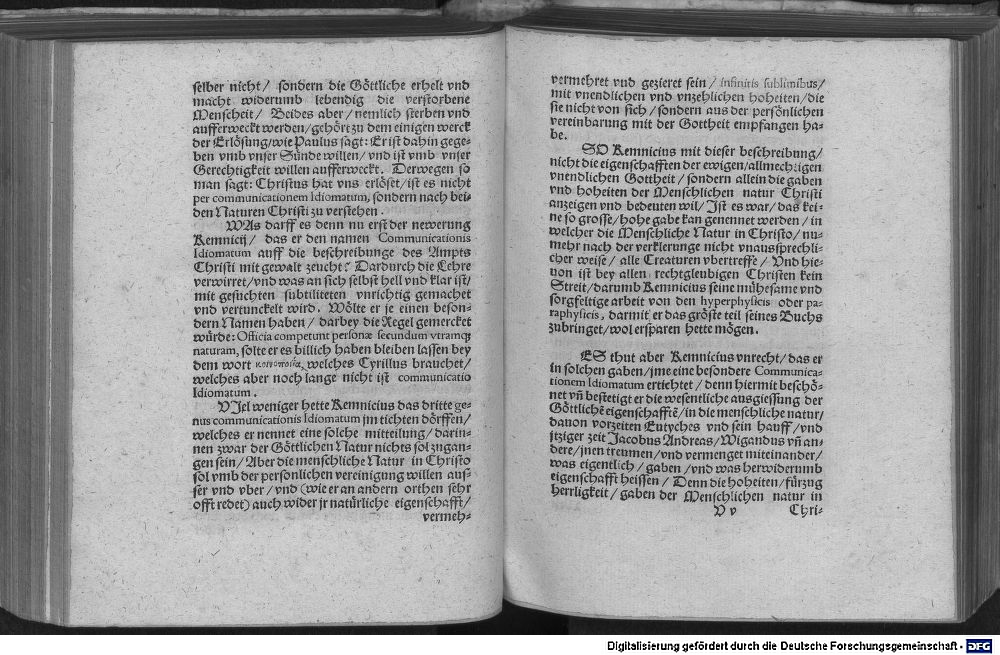 selber nicht / sondern die Göttliche erhelt vnd
macht widerumb lebendig die verstorbene
Menscheit / Beides aber / nemlich sterben vnd
aufferweckt werden / gehört zu dem einigen werck
der Erlösung / wie Paulus sagt: Er ist dahin gege-
ben vmb vnser Sünde willen / vnd ist vmb vnser
Gerechtigkeit willen aufferweckt. Derwegen so
man sagt: Christus hat vns erlöset / ist es nicht
per communicationem Idiomatum, sondern nach bei-
den Naturen Christi zu verstehen.
WAs darff es denn nu erst der newerung
Kemnicij / das er den namen Communicationis
Idiomatum auff die beschreibunge des Ampts
Christi mit gewalt zeucht? Dardurch die Lehre
verwirret / vnd was an sich selbst hell vnd klar ist /
mit gesuchten subtiliteten vnrichtig gemachet
vnd vertunckelt wird. Wölte er je einen beson-
dern Namen haben / darbey die Regel gemercket
würde: Officia competunt personæ secundum vtramq;
naturam, solte er es billich haben bleiben lassen bey
dem wort κοινοποιΐα, welches Cyrillus brauchet /
welches aber noch lange nicht ist communicatio
Idiomatum.
VJel weniger hette Kemnicius das dritte ge-
nus communicationis Idiomatum jm tichten dörffen /
welches er nennet eine solche mitteilung / darin-
nen zwar der Göttlichen Natur nichts sol zugan-
gen sein / Aber die menschliche Natur in Christo
sol vmb der persönlichen vereinigung willen aus-
ser vnd vber / vnd (wie er an andern orthen sehr
offt redet) auch wider jr natürliche eigenschafft /
vermeh-
vermehret vnd gezieret sein / infinitis sublimibus /
mit vnendlichen vnd vnzehlichen hoheiten / die
sie nicht von sich / sondern aus der persönlichen
vereinbarung mit der Gottheit empfangen ha-
be.
SO Kemnicius mit dieser beschreibung /
nicht die eigenschafften der ewigen / allmechtigen
vnendlichen Gottheit / sondern allein die gaben
vnd hoheiten der Menschlichen natur Christi
anzeigen vnd bedeuten wil / Jst es war / das kei-
ne so grosse / hohe gabe kan genennet werden / in
welcher die Menschliche Natur in Christo / nu-
mehr nach der verklerunge nicht vnaussprechli-
cher weise / alle Creaturen vbertreffe / Vnd hie-
uon ist bey allen rechtgleubigen Christen kein
Streit / darumb Kemnicius seine mühesame vnd
sorgfeltige arbeit von den hyperphysicis oder pa-
raphysicis, darmit er das gröste teil seines Buchs
zubringet / wol ersparen hette mögen.
ES thut aber Kemnicius vnrecht / das er
in solchen gaben / jme eine besondere Communica-
tionem Idiomatum ertichtet / denn hiermit beschö-
net vn̄ bestetigt er die wesentliche ausgiessung der
Göttlichē eigenschafftē / in die menschliche natur /
dauon vorzeiten Eutyches vnd sein hauff / vnd
itziger zeit Jacobus Andreas / Wigandus vn̄ an-
dere / jnen treumen / vnd vermenget miteinander /
was eigentlich / gaben / vnd was herwiderumb
eigenschafft heissen / Denn die hoheiten / fürzug
herrligkeit / gaben der Menschlichen natur in
V v Chri-
Digitalisierung gefördert durch die Deutsche Forschungsgemeinschaft - DFG